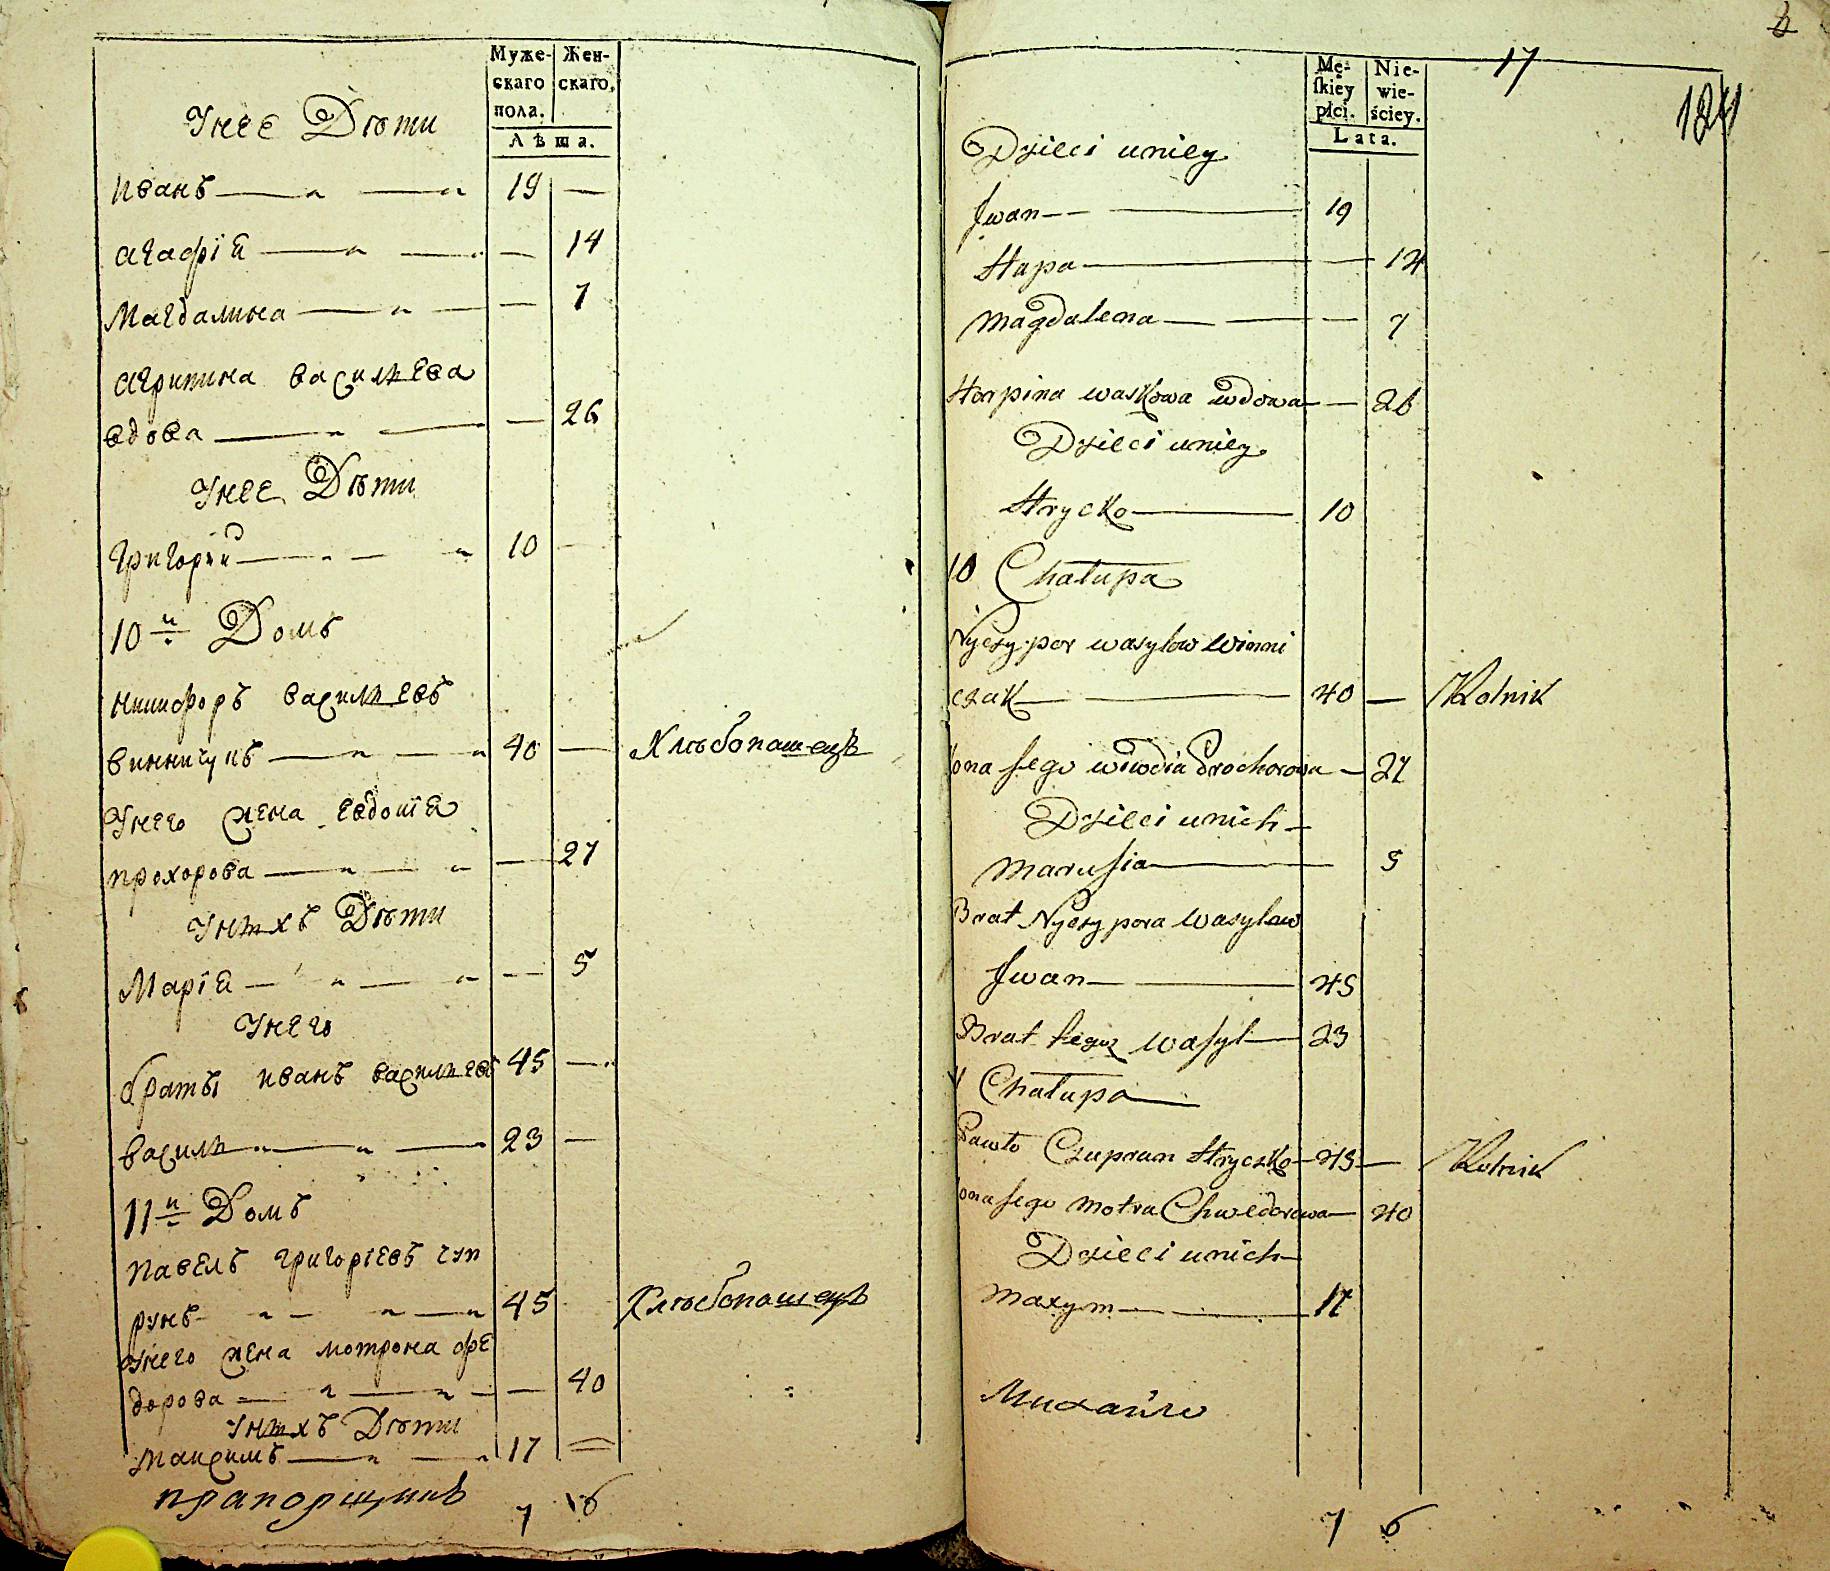 Муже-
скаго
пола.
Жен-
скаго.
Лѣта.
Унее Дѣти
Иванъ 19 —
Агафія — 14
Магдалина — 7
Агрипина Васильева
вдова — 26
Унее Дѣти
Григорий 10 —
10й Домъ
Никифоръ Васильевъ
Винничукъ 40 — Хлѣбопашецъ
Унего жена Евдокія
Прохорова — 27
Унихъ Дѣти
Марія — 5
Унего
братьı Иванъ Васильевъ 45 —
Василь 23 —
11й Домъ
Павелъ Григоріевъ Чуп
рунъ 45 Хлѣбопашецъ
Унего жена Мотрона Фе
дорова — 40
Унихъ Дѣти
Максимъ 17 =
прапорщикъ
7 6
17
124
Mę-
ſkiey
płci.
Nie-
wie-
ściey.
Lata.
Dzieci uniey
Jwan 19
Hapa — 14
Magdalena — 7
Horpina Waskowa wdowa — 26
Dzieci uniey
Hrycko 10
10 Chałupa
Nyczypor Wasylow Winni
czak 40 — Rolnik
ona Jego Wiwdia Prochorowa — 27
Dzieci unich
Marusia 5
Brat Nyczypora Wasylow
Jwan 45
Brat Jego Wasyl 23
1 Chałupa
Pawło Czuprun Hryczko 45 — Rolnik
ona Jego Motra Chwedorowa 40
Dzieci unich
Maxym 17
Михайло
7 6